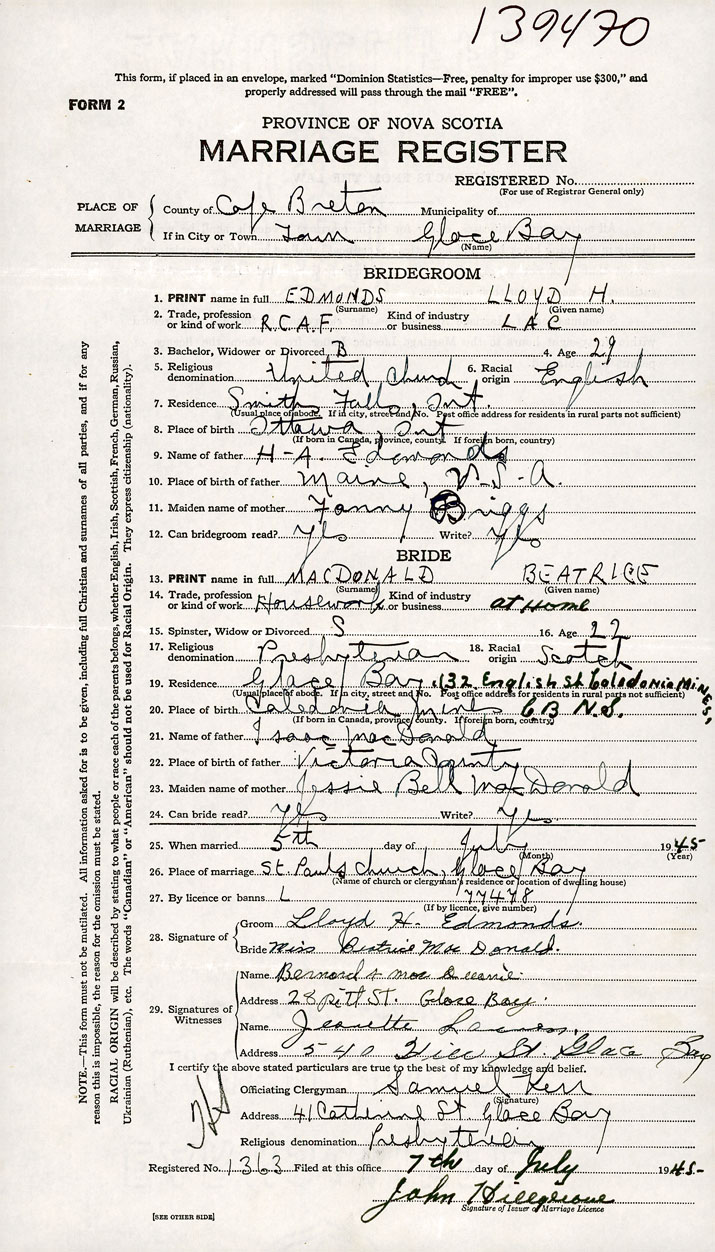 139470
This form, if placed in an envelope, marked "Dominion Statistics—Free, penalty for improper use $300," and
properly addressed will pass through the mail "FREE".
FORM 2
PROVINCE OF NOVA SCOTIA
MARRIAGE REGISTER
REGISTERED No.
(For use of Registrar General only)
PLACE OF MARRIAGE
County of Cape Breton Municipality of
If in City or Town Town Glace Bay
(Name)
BRIDEGROOM
1. PRINT name in full EDMONDS LLOYD H.
(Surname) (Given name)
2. Trade, profession or kind of work R.C.A.F. Kind of industry or business L A C
3. Bachelor, Widower or Divorced B 4. Age 29
5. Religious denomination United Church 6. Racial origin English
7. Residence Smith Falls, Ont.
(Usual place of abode. If in city, street and No. Post office address for residents in rural parts not sufficient)
8. Place of birth Ottawa, Ont
(If born in Canada, province, county. If foreign born, country)
9. Name of father H-A. Edmonds
10. Place of birth of father Maine, U.S.A.
11. Maiden name of mother Fanny Briggs
12. Can bridegroom read? Yes Write? Yes
BRIDE
13. PRINT name in full MACDONALD BEATRICE
(Surname) (Given name)
14. Trade, profession or kind of work Housework Kind of industry or business at Home
15. Spinster, Widow or Divorced S 16. Age 22
17. Religious denomination Presbyterian 18. Racial origin Scotch
19. Residence Glace Bay, 132 English St Caledonia Mines,
(Usual place of abode. If in city, street and No. Post office address for residents in rural parts not sufficient)
20. Place of birth Caledonia Mines CB N.S.
(If born in Canada, province, county. If foreign born, country)
21. Name of father Isaac MacDonald
22. Place of birth of father Victoria County
23. Maiden name of mother Jessie Bell MacDonald
24. Can bride read? Yes Write? Yes
25. When married 5th day of July 1945
(Month) (Year)
26. Place of marriage St. Pauls Church, Glace Bay
(Name of church or clergyman's residence or location of dwelling house)
27. By licence or banns L 77478
(If by licence, give number)
28. Signature of
Groom Lloyd H. Edmonds.
Bride Miss Beatrice MacDonald.
29. Signatures of Witnesses
Name Bernard
Address 28 Pitt St. Glace Bay.
Name Jeanette
Address 540 St. Glace Bay
I certify the above stated particulars are true to the best of my knowledge and belief.
Officiating Clergyman Samuel Kerr
(Signature)
Address 41 Catherine St Glace Bay
Religious denomination Presbyterian
Registered No. 1363 Filed at this office 7th day of July 1945-
John Hillgrove
Signature of Issuer of Marriage Licence
[SEE OTHER SIDE]
NOTE.—This form must not be mutilated. All information asked for is to be given, including full Christian and surnames of all parties, and if for any
reason this is impossible, the reason for the omission must be stated.
RACIAL ORIGIN will be described by stating to what people or race each of the parents belongs, whether English, Irish, Scottish, French, German, Russian,
Ukrainian (Ruthenian), etc. The words "Canadian" or "American" should not be used for Racial Origin. They express citizenship (nationality).